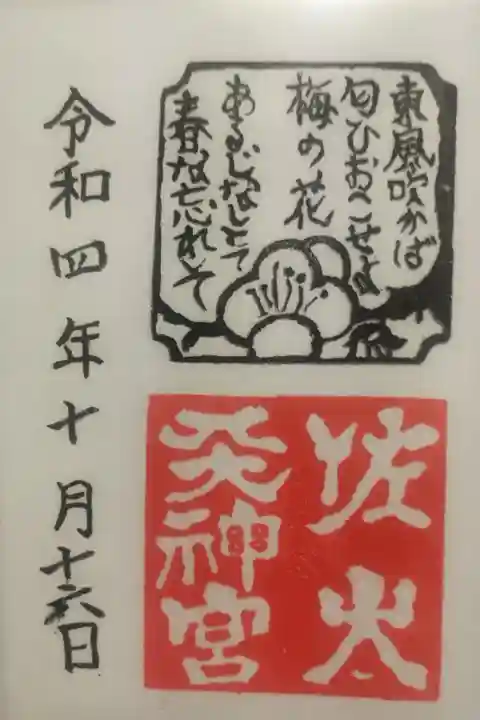 東風吹かば
匂ひおこせよ
梅の花
あるじなしとて
春な忘れそ
佐太
天神宮
令和四年十月十六日